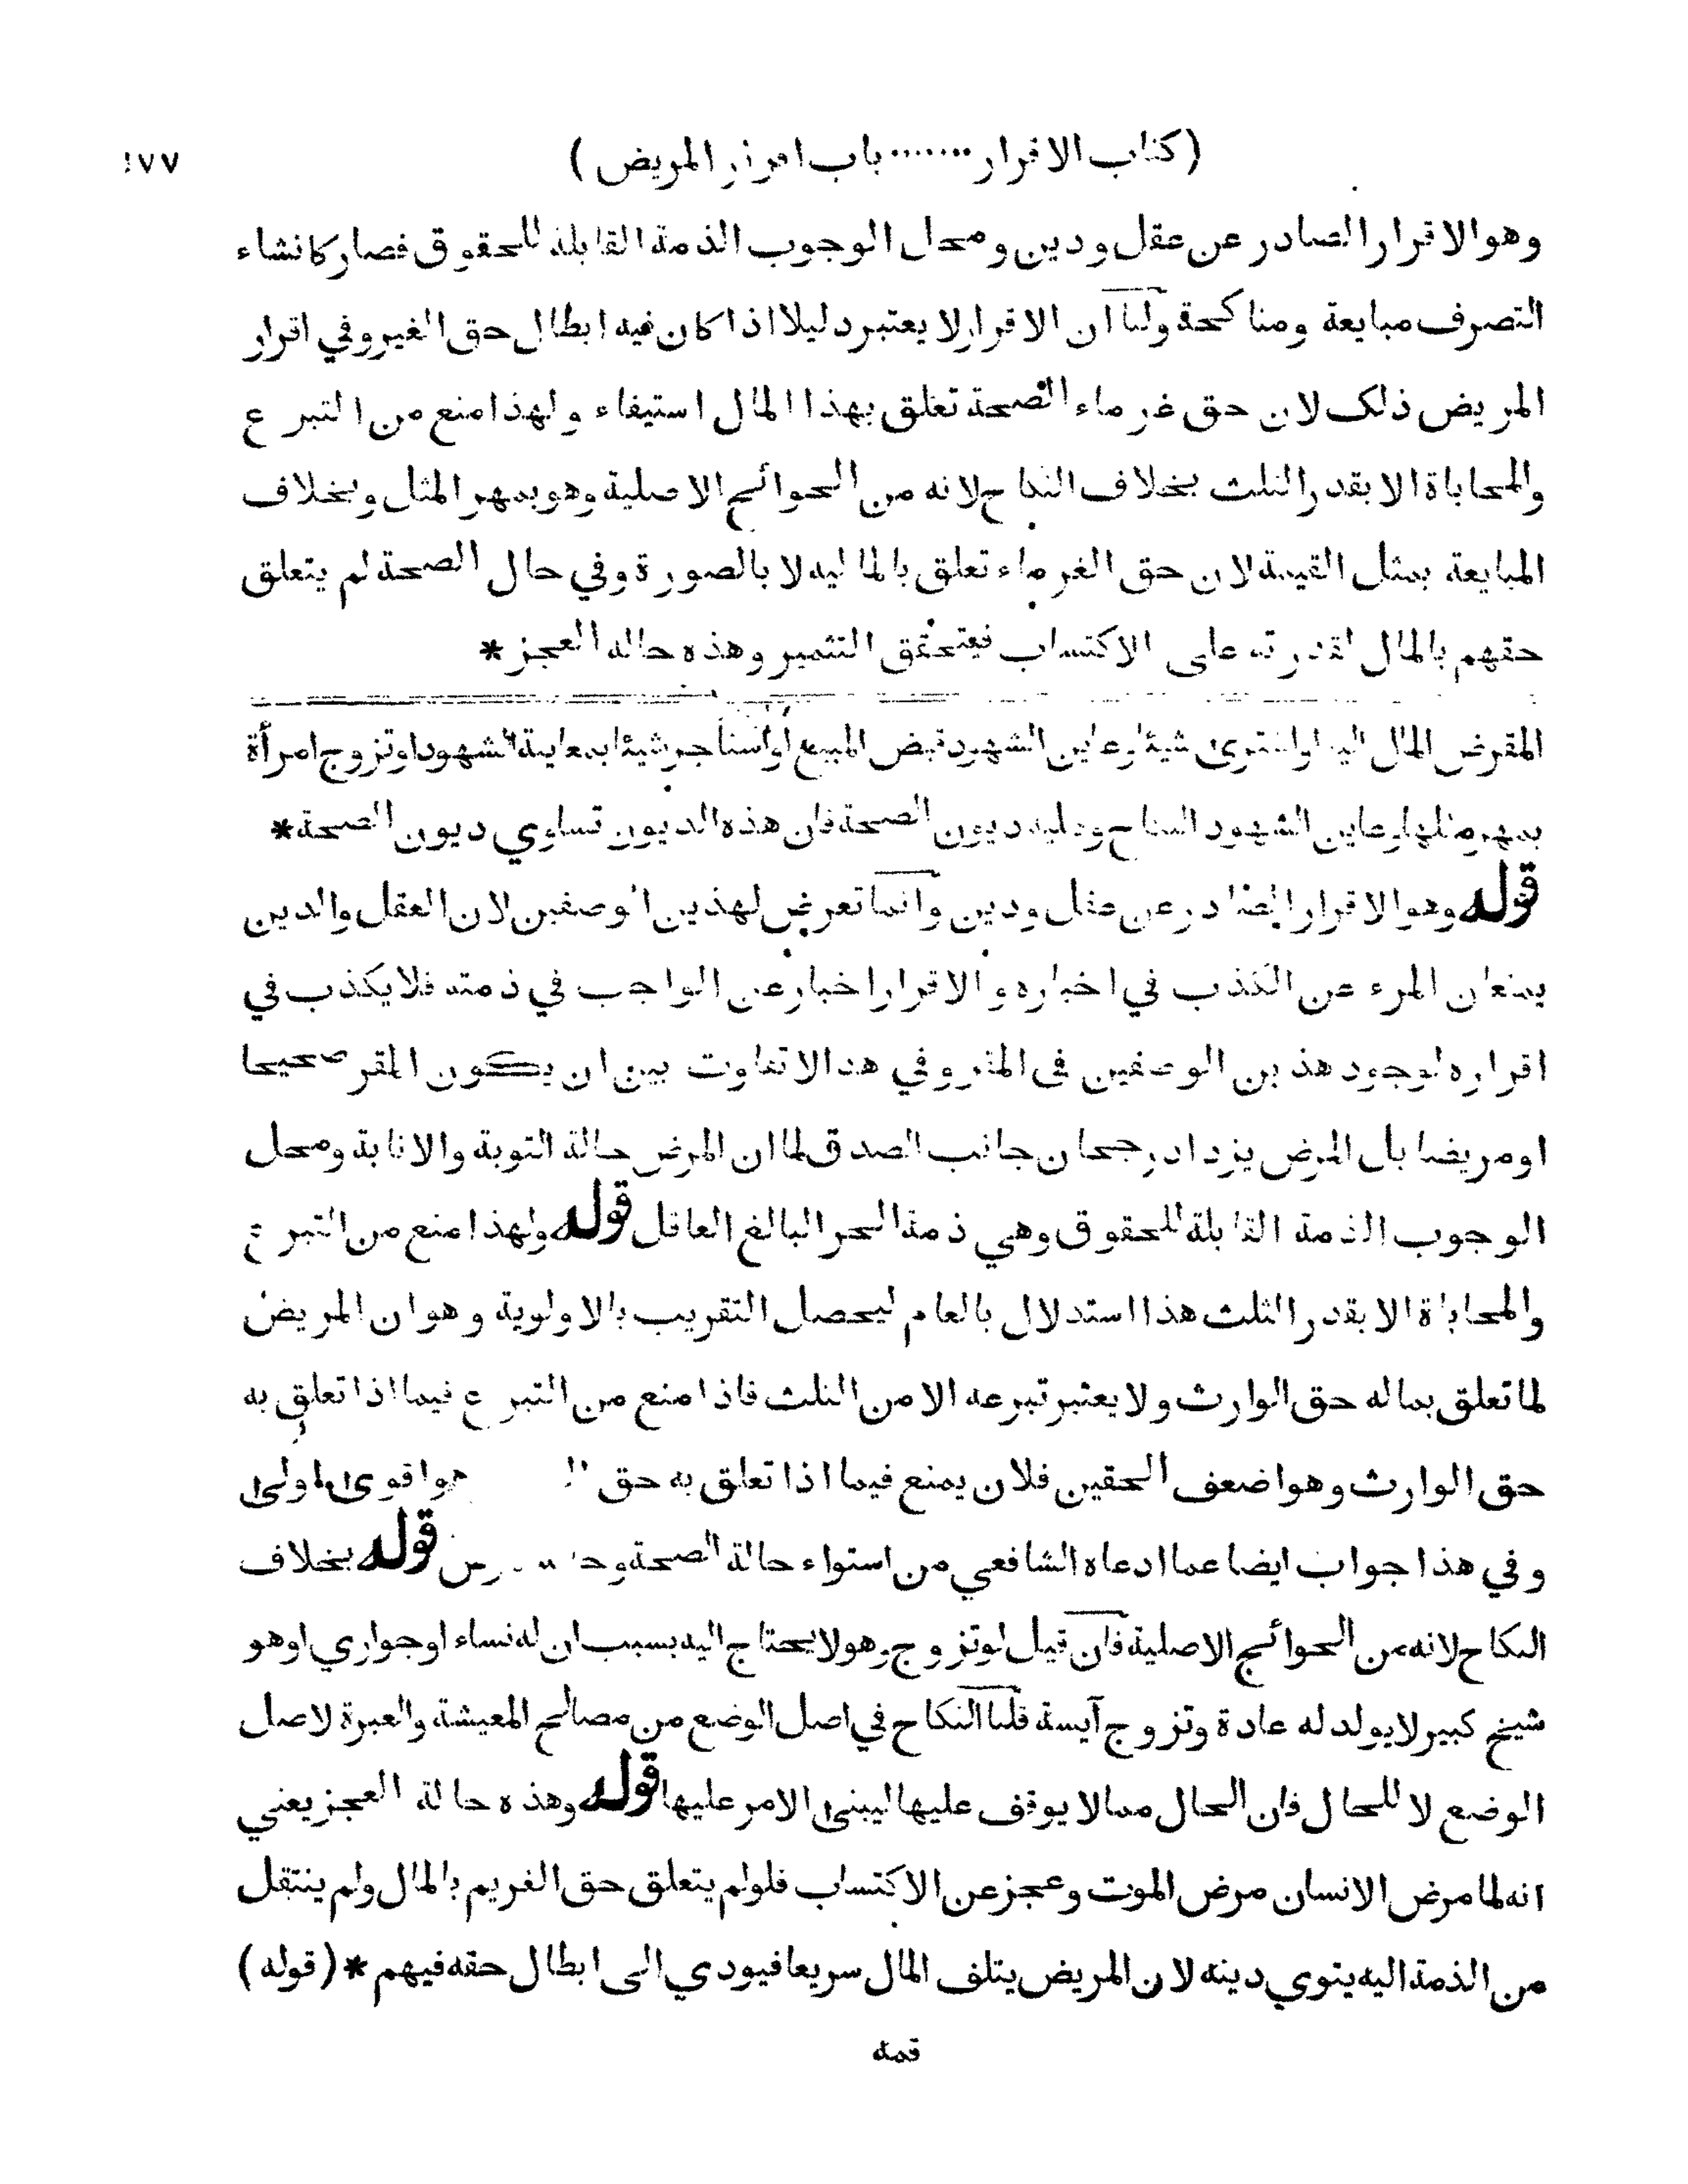 (كتاب الاقرار ······· باب اقرار المريض) ١٧٧
وهو الاقرار الصادر عن عقل ودين ومحل الوجوب الذمة القابلة للحقوق فصار كانشاء
التصرف مبايعة ومناكحة ولنا ان الاقرار لا يعتبر دليلا اذا كان فيه ابطال حق الغير وفي اقرار
المريض ذلك لان حق غرماء الصحة تعلق بهذا المال استيفاء ولهذا منع من التبرع
والمحاباة الا بقدر الثلث بخلاف النكاح لانه من الحوائج الاصلية وهو بمهر المثل وبخلاف
المبايعة بمثل القيمة لان حق الغرماء تعلق بالماليه لا بالصورة وفي حال الصحة لم يتعلق
حقهم بالمال لقدرته على الاكتساب فيتحقق التثمير وهذه حاله العجز *
المقرض المال اليه او اشترى شيئا وعاين الشهود قبض المبيع او استأجر شيئا بمعاينة الشهود او تزوج امرأة
بمهر مثلها وعاين الشهود النكاح ديون الصحة فان هذه الديون تساوي ديون الصحة *
قوله وهو الاقرار الصادر عن عقل ودين وانما تعرض لهذين الوصفين لان العقل والدين
يمنعان المرء عن الكذب في اخباره والاقرار اخبار عن الواجب في ذمته فلا يكذب في
اقراره لوجود هذين الوصفين فى المقر وفي هذا لا تفاوت بين ان يكون المقر صحيحا
او مريضا بل المرض يزداد رجحان جانب الصدق لما ان المرض حالة التوبة والانابة ومحل
الوجوب الذمة القابلة للحقوق وهي ذمة الحر البالغ العاقل قوله ولهذا منع من التبرع
والمحاباة الا بقدر الثلث هذا استدلال بالعام ليحصل التقريب بالاولوية وهو ان المريض
لما تعلق بماله حق الوارث ولا يعتبر تبرعه الا من الثلث فاذا منع من التبرع فيما اذا تعلق به
حق الوارث وهو اضعف الحقين فلان يمنع فيما اذا تعلق به حق هو اقوى اولى
وفي هذا جواب ايضا عما ادعاه الشافعي من استواء حالة الصحة قوله بخلاف
النكاح لانه من الحوائج الاصلية فان قيل لو تزوج وهو لا يحتاج اليه بسبب ان له نساء او جواري او هو
شيخ كبير لا يولد له عادة وتزوج آيسة قلنا النكاح في اصل الوضع من مصالح المعيشة والعبرة لاصل
الوضع لا للحال فان الحال مما لا يوقف عليها ليبنى الامر عليها قوله وهذه حالة العجز يعني
انه لما مرض الانسان مرض الموت وعجز عن الاكتساب فلو لم يتعلق حق الغريم بالمال ولم ينتقل
من الذمة اليه يتوي دينه لان المريض يتلف المال سريعا فيودي الى ابطال حقه فيهم * (قوله)